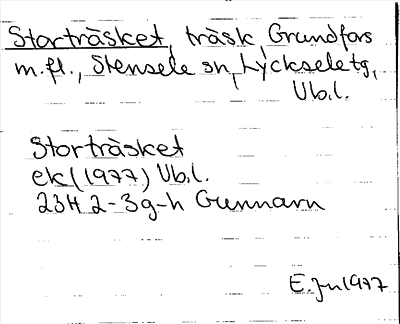 Storträsket, träsk, Grundfors
m.fl., Stensele sn, Lyckseletg,
Vb.l.
Storträsket
ek (1977) Vb.l.
23H 2-3g-h Gunnarn
E.Jn 1977